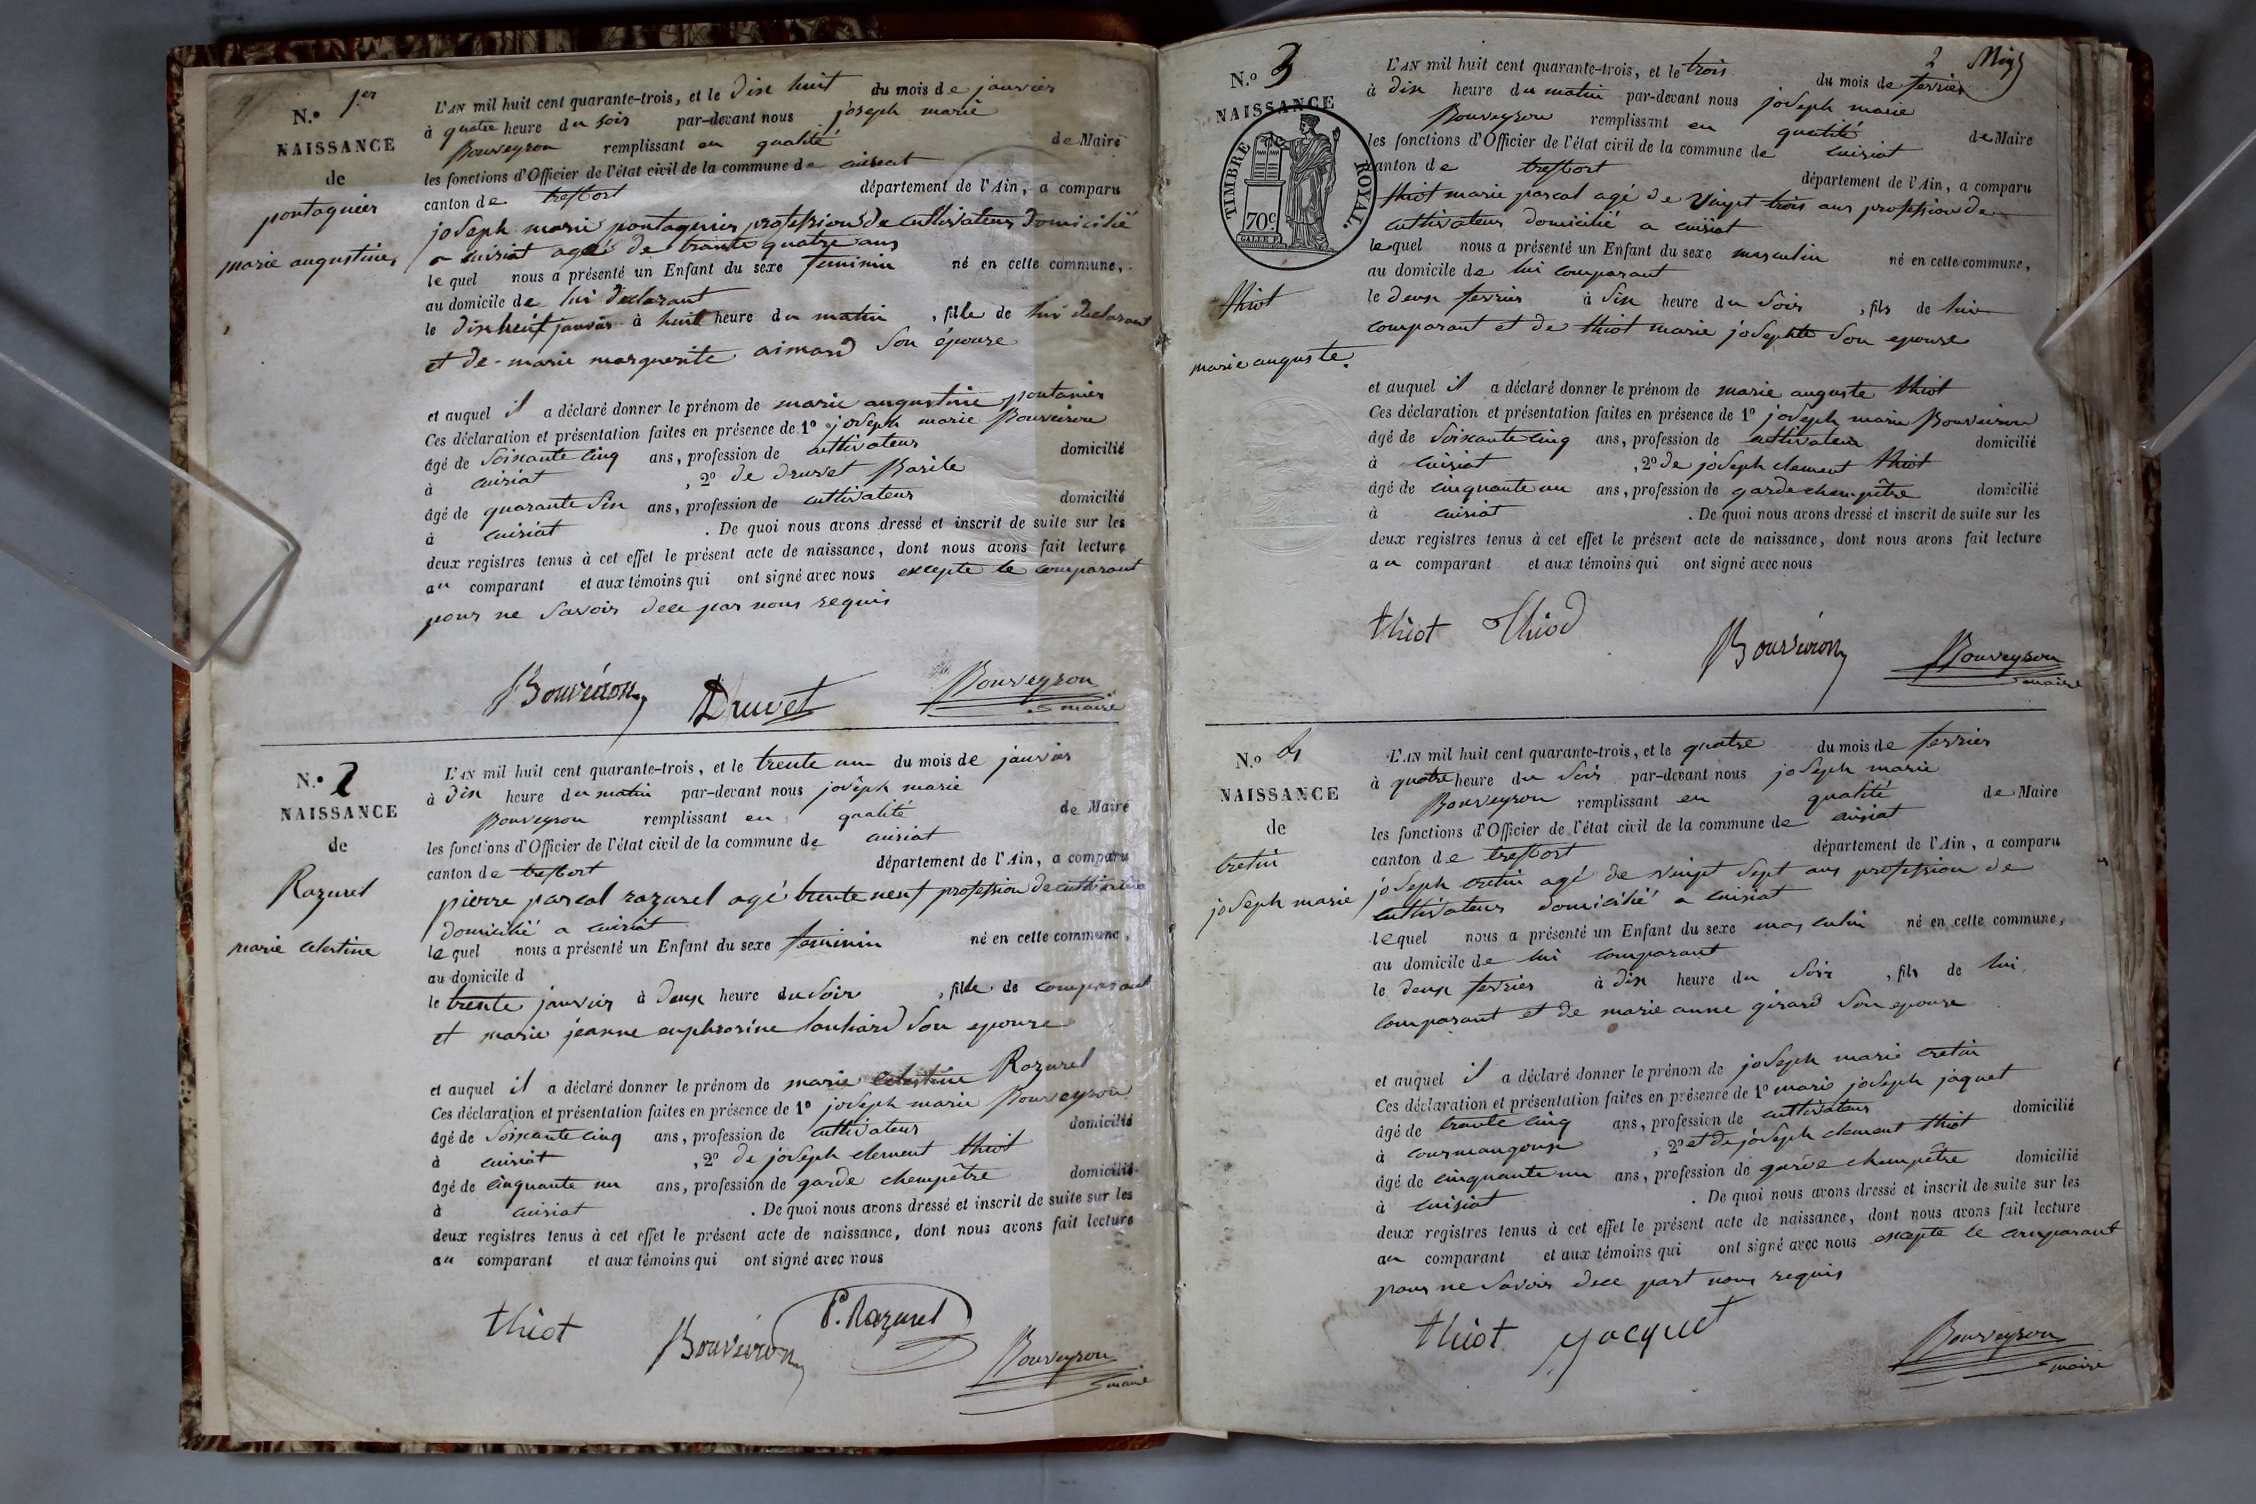 N.o 1er
NAISSANCE
de
pontaquier
marie augustine
L'AN mil huit cent quarante-trois, et le dix huit du mois de janvier
à quatre heure du soir par-devant nous joseph marie
Bouveyron remplissant en qualité de Maire
les fonctions d'Officier de l'état civil de la commune de cuisiat
canton de treffort département de l'Ain, a comparu
joseph marie pontaquier profession de cultivateur domicilié
a cuisiat agé de trante quatre ans
le quel nous a présenté un Enfant du sexe feminin né en cette commune,
au domicile de lui declarant
le dix huit janvier à huit heure du matin, fille de lui declarant
et de marie marguerite aimard son épouse
et auquel il a déclaré donner le prénom de marie augustine pontanier
Ces déclaration et présentation faites en présence de 1o joseph marie Bouveiron
âgé de soixante cinq ans, profession de cultivateur domicilié
à cuisiat, 2o de druvet Basile
âgé de quarante six ans, profession de cultivateur domicilié
à cuisiat. De quoi nous avons dressé et inscrit de suite sur les
deux registres tenus à cet effet le présent acte de naissance, dont nous avons fait lecture
au comparant et aux témoins qui ont signé avec nous excepte le comparant
pour ne savoir dece par nous requis
Bouveiron Druvet Bouveyron
maire
N.o 2
NAISSANCE
de
Razurel
marie celestine
L'AN mil huit cent quarante-trois, et le trente un du mois de janvier
à dix heure du matin par-devant nous joseph marie
Bouveyron remplissant en qualité de Maire
les fonctions d'Officier de l'état civil de la commune de cuisiat
canton de treffort département de l'Ain, a comparu
pierre pascal razurel agé trente neuf profession de cultivateur
domicilié a cuisiat
le quel nous a présenté un Enfant du sexe feminin né en cette commune,
au domicile d
le trente janvier à deux heure du soir, fille de comparant
et marie jeanne euphrosine son epouse
et auquel il a déclaré donner le prénom de marie celestine Razurel
Ces déclaration et présentation faites en présence de 1o joseph marie Bouveyron
âgé de soixante cinq ans, profession de cultivateur domicilié
à cuisiat, 2o de joseph clement thiot
âgé de cinquante un ans, profession de garde chempêtre domicilié
à cuisiat. De quoi nous avons dressé et inscrit de suite sur les
deux registres tenus à cet effet le présent acte de naissance, dont nous avons fait lecture
au comparant et aux témoins qui ont signé avec nous
thiot Bouveiron P. Razurel Bouveyron
maire
2
N.o 3
NAISSANCE
TIMBRE ROYAL.
70c.
thiot
marie auguste.
L'AN mil huit cent quarante-trois, et le trois du mois de fevrier
à dix heure du matin par-devant nous joseph marie
Bouveyron remplissant en qualité de Maire
les fonctions d'Officier de l'état civil de la commune de cuisiat
canton de treffort département de l'Ain, a comparu
thiot marie pascal agé de vingt trois ans profession de
cultivateur domicilié a cuisiat
lequel nous a présenté un Enfant du sexe masculin né en cette commune,
au domicile de lui comparant
le deux fevrier à six heure du soir, fils de lui
comparant et de thiot marie josephte son epouse
et auquel il a déclaré donner le prénom de marie auguste thiot
Ces déclaration et présentation faites en présence de 1o joseph marie Bouveiron
âgé de soixante cinq ans, profession de cultivateur domicilié
à cuisiat, 2o de joseph clement thiot
âgé de cinquante un ans, profession de garde chempêtre domicilié
à cuisiat. De quoi nous avons dressé et inscrit de suite sur les
deux registres tenus à cet effet le présent acte de naissance, dont nous avons fait lecture
au comparant et aux témoins qui ont signé avec nous
thiot thiod Bouveiron Bouveyron
maire
N.o 4
NAISSANCE
de
cretin
joseph marie
L'AN mil huit cent quarante-trois, et le quatre du mois de fevrier
à quatre heure du soir par-devant nous joseph marie
Bouveyron remplissant en qualité de Maire
les fonctions d'Officier de l'état civil de la commune de cuisiat
canton de treffort département de l'Ain, a comparu
joseph cretin agé de vingt sept ans profession de
cultivateur domicilié a cuisiat
lequel nous a présenté un Enfant du sexe masculin né en cette commune,
au domicile de lui comparant
le deux fevrier à dix heure du soir, fils de lui
comparant et de marie anne girard son epouse
et auquel il a déclaré donner le prénom de joseph marie cretin
Ces déclaration et présentation faites en présence de 1o marie joseph jaquet
âgé de trante cinq ans, profession de cultivateur domicilié
à courmangoux, 2o et de joseph clement thiot
âgé de cinquante un ans, profession de garde chempêtre domicilié
à cuisiat. De quoi nous avons dressé et inscrit de suite sur les
deux registres tenus à cet effet le présent acte de naissance, dont nous avons fait lecture
au comparant et aux témoins qui ont signé avec nous excepte le comparant
pour ne savoir dece part nous requis
thiot Jacquet Bouveyron
maire